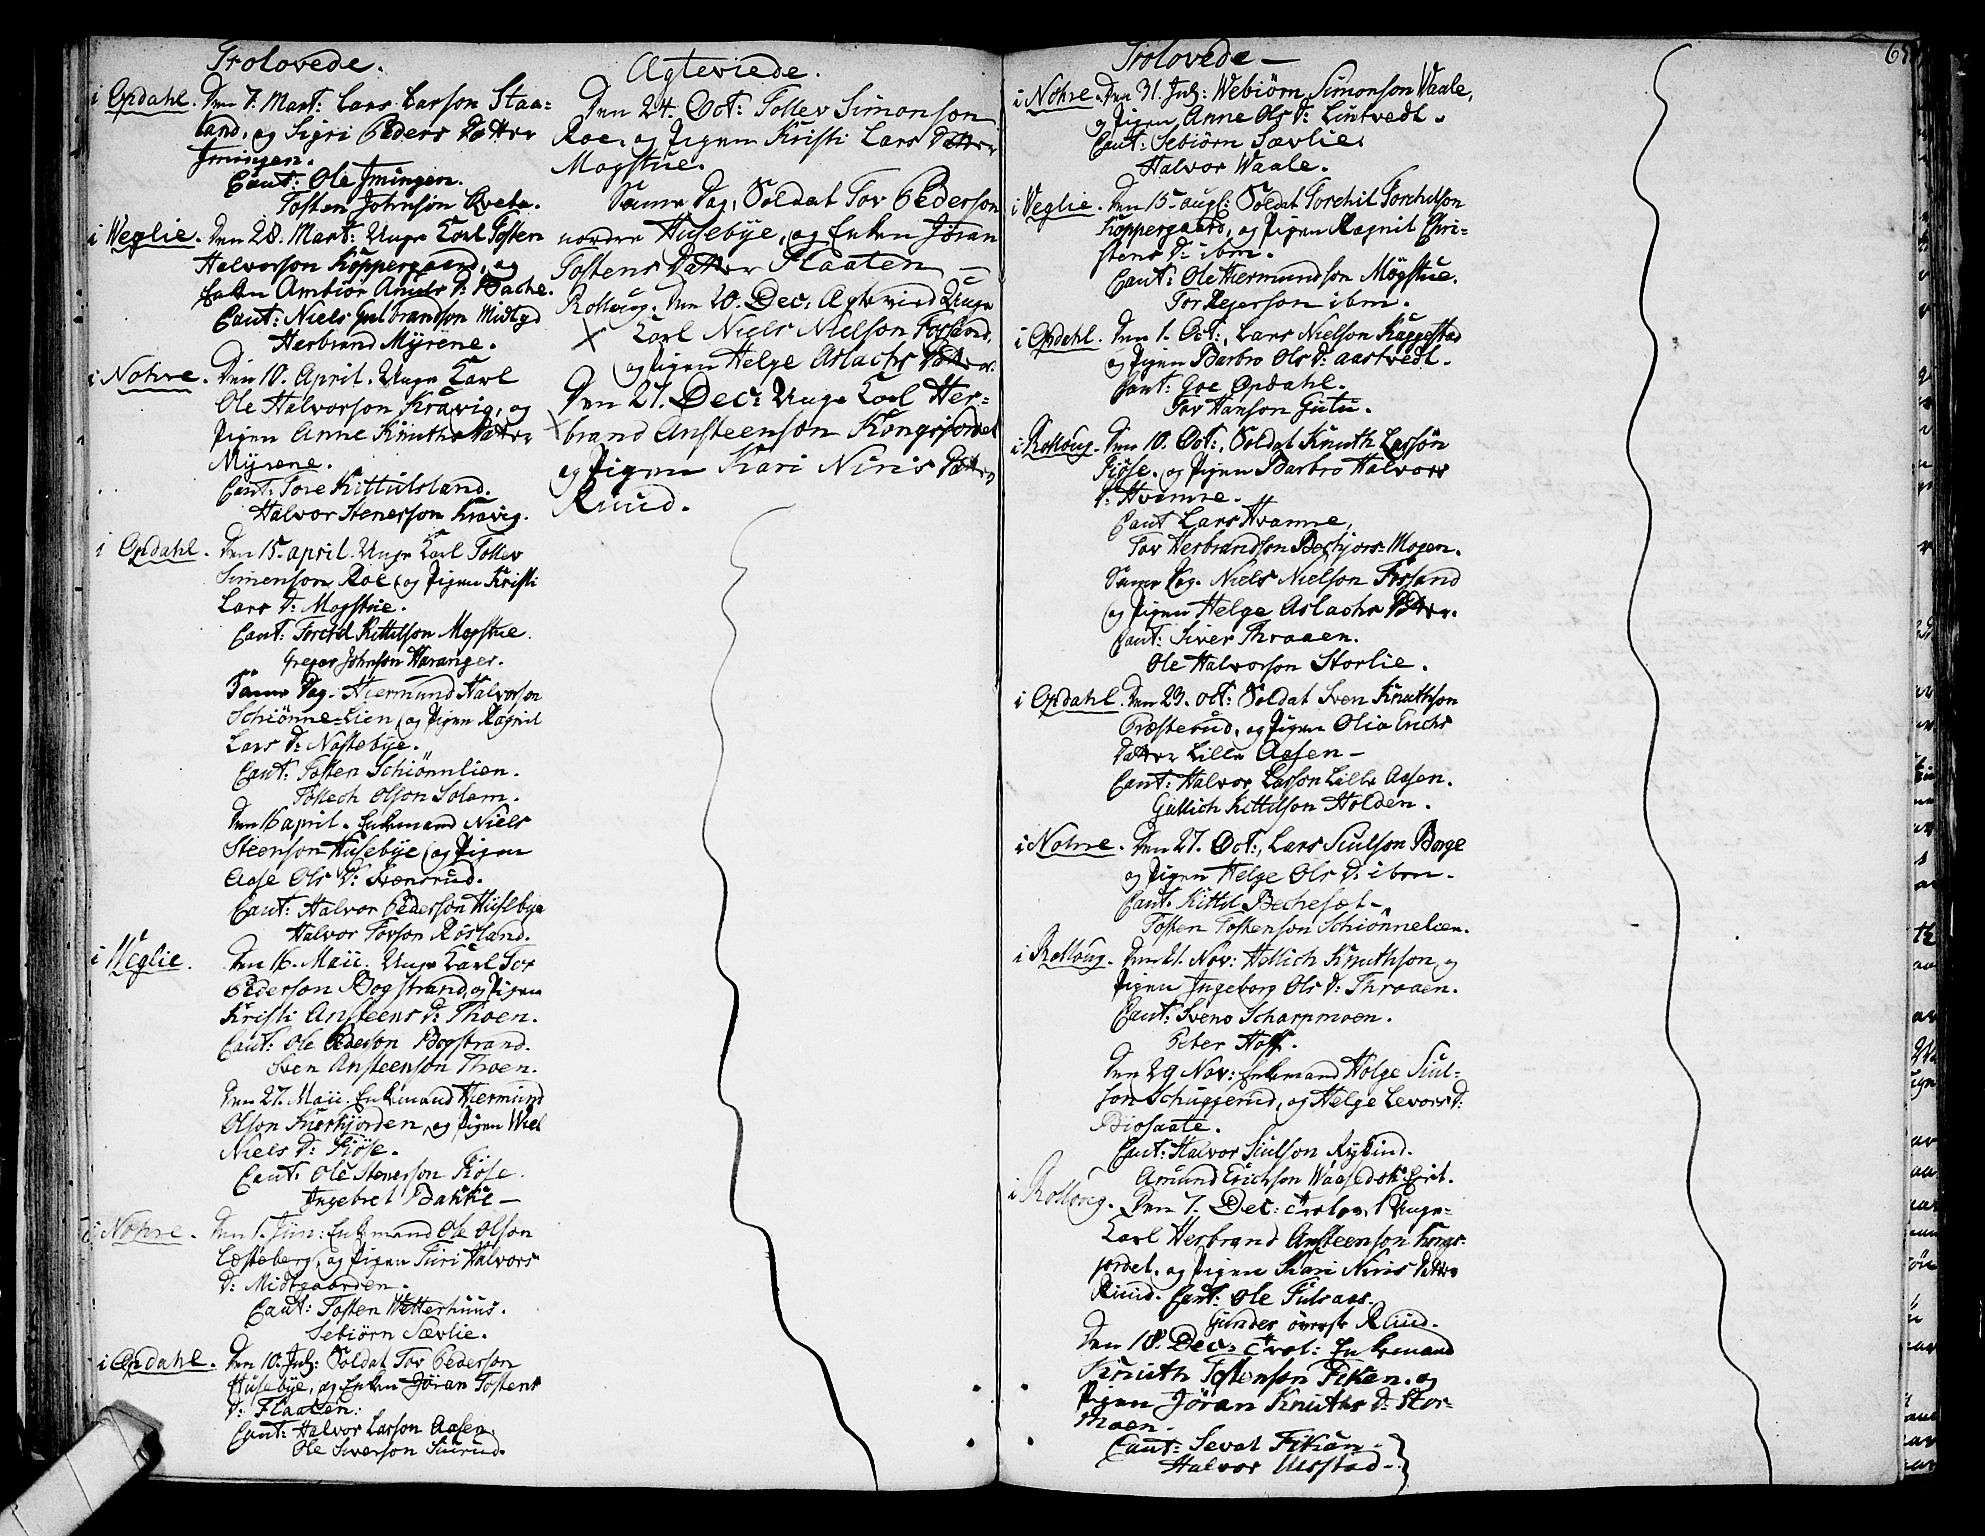 Trolovede.
i Opdahl. Den 7. Mart: Lars Larson Staa=
land, og Sigri Peders Datter
Jmingen.
Caut: Ole Jmingen.
Tosten Johnson Qveta.
i Weglie. Den 28. Mart: Unge Karl Tosten
Halvorson Koppergaard, og
Enken Ambiør Amels D: Bache.
Caut: Niels Gulbrandson Midtgd
Herbrand Myrene.
i Nohre. Den 10. April. Unge Karl
Ole Halvorson Kravig, og
Pigen Anne Knuths Datter
Myrene.
Caut: Tore Kittulsland.
Halvor Stenerson Kravig.
i Opdahl. Den 15. april. Unge Karl Tollev
Simenson Roe, og Pigen Kristi
Lars D: Mogstue.
Caut: Torchil Kittilson Mogstue.
Greger Johnson Haranger.
Samme Dag. Hiermund Halvorson
Schiønne=Lien, og Pigen Ragnil
Lars D: Nostebye.
Caut: Tosten Schiønnlien.
Tollech Olson Solem.
Den 16 april. Enkemand Niels
Steenson Husebye, og Pigen
Aase Ols D: Svensrud.
Caut: Halvor Pederson Husebye
Halvor Torson Røsland.
i Weglie. Den 16. Maii. Unge Karl Tor
Pederson Bogstrand, og Pigen
Kristi Ansteens D: Thoen.
Caut: Ole Pederson Bogstrand.
Sven Ansteenson Thoen.
Den 27. Maii. Enkemand Hiermund
Olson Kirkjorden, og Pigen
Niels D: Fiøse.
Caut. Ole Stenerson Fiøse.
Ingebret Bakke —
i Nohre. Den 1. Jun: Enkemand Ole Olson
Læsteberg, og Pigen Turi Halvors
D: Midtgaarden.
Caut: Tosten Wetterhuus.
Sebiørn Sævlie.
i Opdahl. Den 10. Jul: Soldat Tor Pederson
Husebye, og Enken Jøran Tostens
D: Flaaten:
Caut: Halvor Larson Aasen.
Ole Siverson Suurud.
Ægteviede.
Den 24. Oct: Tollev Simonson
Roe, og Pigen Kristi Lars Datter
Mogstue.
Samme Dag, Soldat Tor Pederson
nordre Husebye, og Enken Jøran
Tostens Datter Flaaten —
Rolloug. Den 20. Dec: Ægteviet Unge
Karl Niels Nielson Fosland,
og Pigen Helge Aslachs Datter.
Den 27. Dec: Unge Karl Her=
brand Ansteenson Kongsjordet
og Pigen Kari Niris Datter
Ruud.
Trolovede —
65
i Nohre. Den 31. Jul: Webiørn Simonson Waale,
og Pigen Anne Ols D: Lintvedt.
Caut: Sebiørn Sævlie.
Halvor Waale.
i Weglie. Den 15. augl: Soldat Torchil Torchilson
Koppergaard, og Pigen Ragnil Chri=
stens D: ibm.
Caut: Ole Hiermundson Mogstue.
Tor Reierson ibm.
i Opdahl. Den 1. Oct:, Lars Nielson Kaggestad
og Pigen Barbro Ols D: Aastvedt.
Caut: Goe Opdahl.
Tor Hanson Gutu.
i Rolloug. Den 10. Oct:, Soldat Knuth Larsøn
Fiøse, og Pigen Barbro Halvors
D: Hvamme.
Caut Lars Hvamme,
Tor Herbrandson Beckjors-Mogen.
Samme Dag. Niels Nielson Fosland
og Pigen Helge Aslachs Datter.
Caut: Siver Thraaen.
Ole Halvorson Storlie.
i Opdahl. Den 23. oct: Soldat Sven Knuthson
Præsterud, og Pigen Olia Erichs
Datter Lille Aasen —
Caut: Halvor Larson Lille Aasen.
Gullich Kittilson Holden.
i Nohre. Den 27. Oct:, Lars Siulson Borge
og Pigen Helge Ols D: ibm.
Caut. Kittil Bechesæt —
Tosten Tostenson Schiønnelien.
i Rolloug. Den 21. Nov: Hellich Knuthson, og
Pigen Ingeborg Ols D: Thraaen.
Caut: Sveno Scharpmoen.
Peter Hoff.
Den 29 Nov: Enkemand Holge Siul=
son Schuggerud, og Helge Levors D:
Biosaate.
Caut: Halvor Siulson Rykind.
Amund Erichson
i Rolloug. Den 7. Dec: trolov. Unge-
Karl Herbrand Ansteenson Kongs-
jordet, og Pigen Kari Niris Datter
Ruud. Caut: Ole Fulsaas.
Gunder øverste Ruud.
Den 18. Dec: Trol: Enkemand
Knuth Tostenson Fikan. og
Pigen Jøran Knuths D: Stor-
thoen.
Caut: Seval Fikan.
Halvor Uurstad —